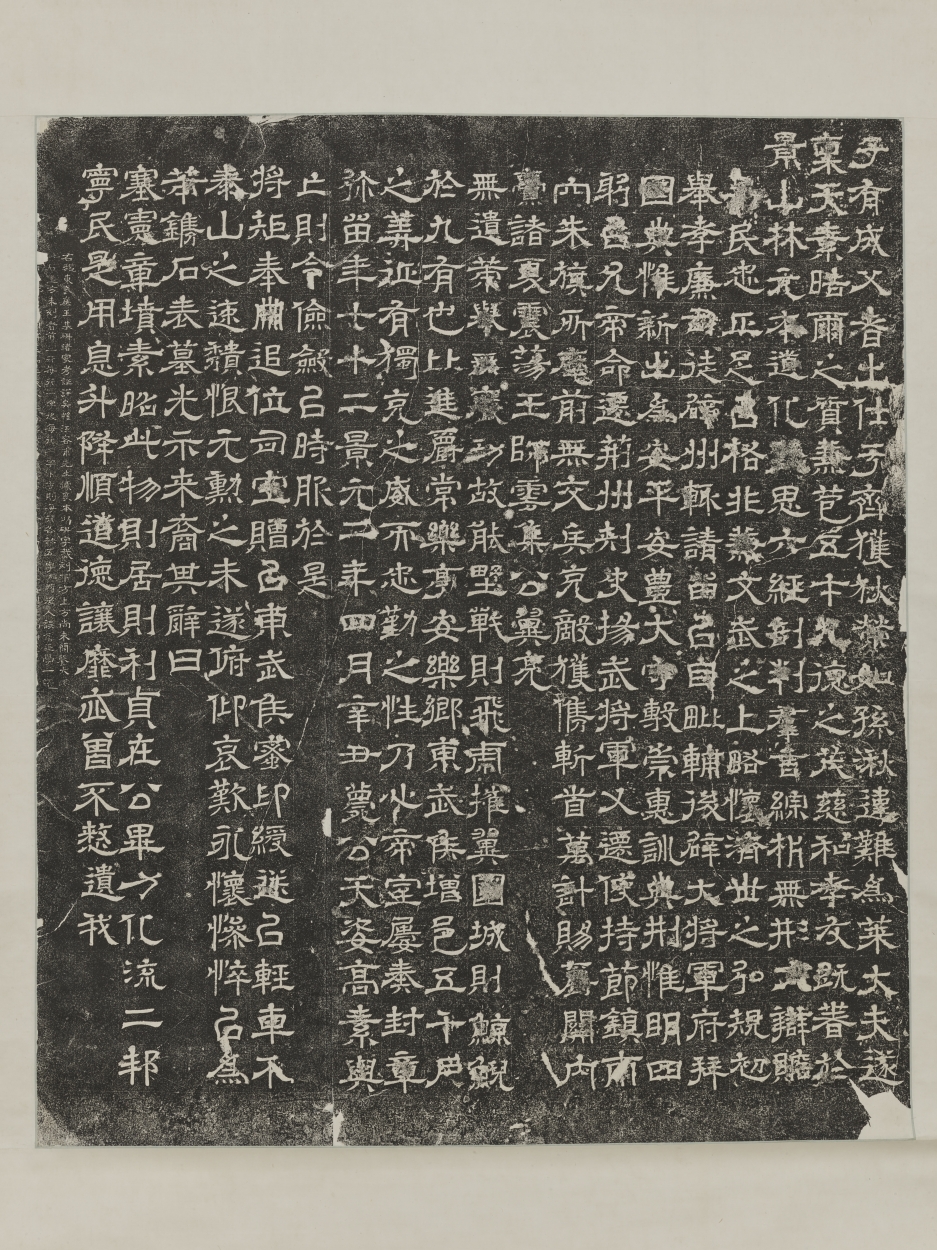 子有成父者出仕于齊獲狄榮如孫湫違難爲萊大夫遂
稟天素晧爾之質兼苞五才九德之茂慈和孝友既著於
景山林元本道化致思六經剖判羣言綜析無形文辯贍
民忠正足以格非兼文武之上略懷濟世之弘規初
舉孝廉司徒辟州輒請留以自毗輔後辟大將軍府拜
國典惟新出爲安平安豐大守敷崇惠訓典刑惟明四
躬以允帝命遷荊州刺史揚武將軍又遷使持節鎮南
內朱旗所麾前無交兵克敵獲儁斬首萬計賜爵關內
亶諸夏震蕩王師雲集公翼亮
無遺策舉無廢功故能野戰則飛虎摧翼圍城則鯨鯢
於九有也比進爵常樂亭安樂鄉東武侯增邑五千戶
之美近有獨克之威而忠勤之性乃心帝室屢奏封章
弥留年七十二景元二年四月辛丑薨公天姿高素與
上則令儉斂以時服於是
將矩奉冊追位司空贈以東武侯蜜印綬送以輕車介
泰山之速頹恨元勳之未遂俯仰哀歎永懷慘悴以爲
苐鐫石表墓光示来裔其辭曰
塞憲章墳素昭此物則居則利貞在公畢力化流二邦
寧民是用息升降順道德讓靡忒曾不憖遺我